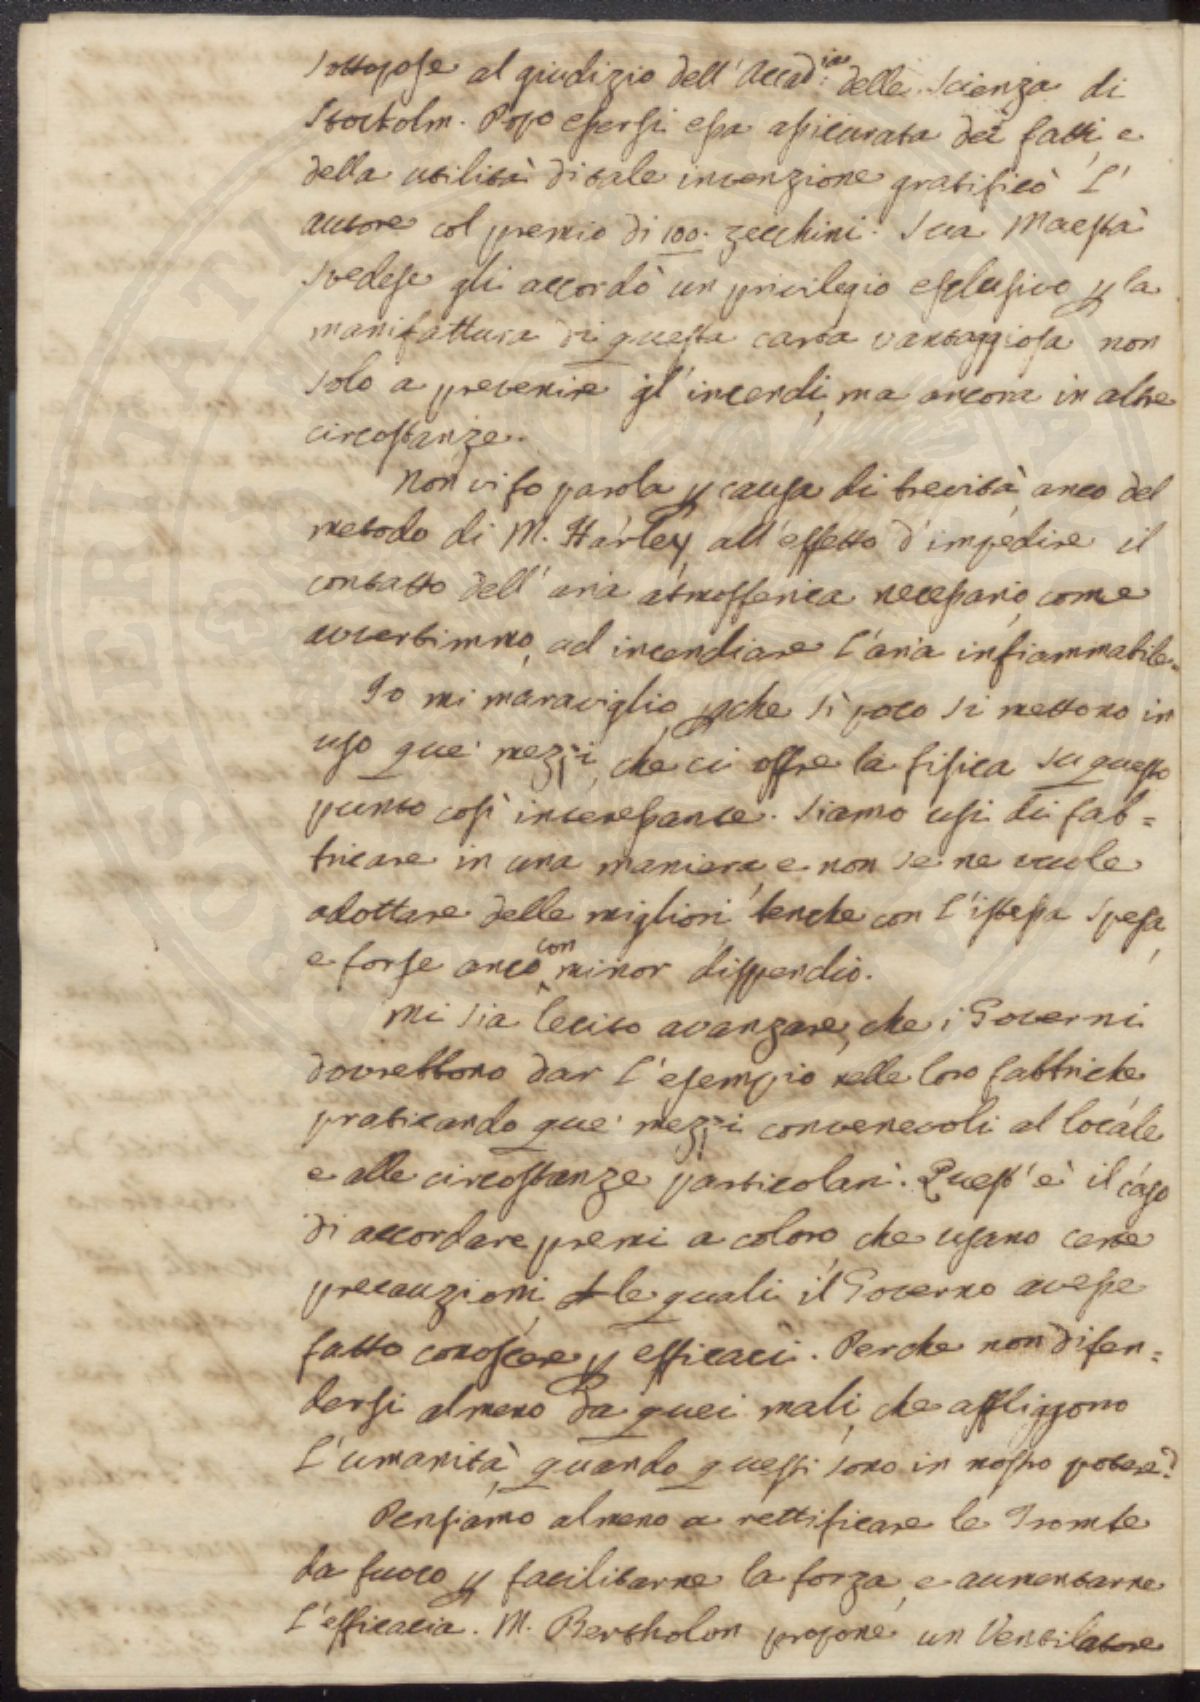 sottopose al giudizio dell'Accad:ia delle Scienza di
Stockolm. Dopo essersi essa assicurata dei fatti, e
della utilità di tale invenzione gratificò l'
autore col premio di 100. zecchini. Sua Maestà
Svedese gli accordò un privilegio esclusivo p la
manifattura di questa carta vantaggiosa non
solo a prevenire gl'incendi, ma ancora in altre
circostanze.
Non vi fo parola p causa di brevità anco del
metodo di M. Harley, all'effetto d'impedire il
contatto dell'aria atmosferica necessario, come
avvertimmo, ad incendiare l'aria infiammabile.
Io mi maraviglio, pche sì poco si mettono in
uso que' mezzi, che ci offre la fisica su questo
punto così interessante. Siamo usi di fab=
bricare in una maniera, e non se ne vuole
adottare delle migliori, benche con l'istessa spesa,
e forse anco con minor dispendio.
Mi sia lecito avanzare, che i Governi
dovrebbono dar l'esempio nelle loro fabbriche
praticando que' mezzi convenevoli al locale
e alle circostanze particolari. Quest'è il caso
di accordare premi a coloro, che usano certe
precauzioni, le quali il Governo avesse
fatto conoscere p efficaci. Perche non difen=
dersi almeno da quei mali, che affliggono
l'umanità, quando questi sono in nostro potere?
Pensiamo almeno a rettificare le Trombe
da fuoco p facilitarne la forza, e aumentarne
l'efficacia. M. Bertholon propone un Ventilatore
SPERITATI